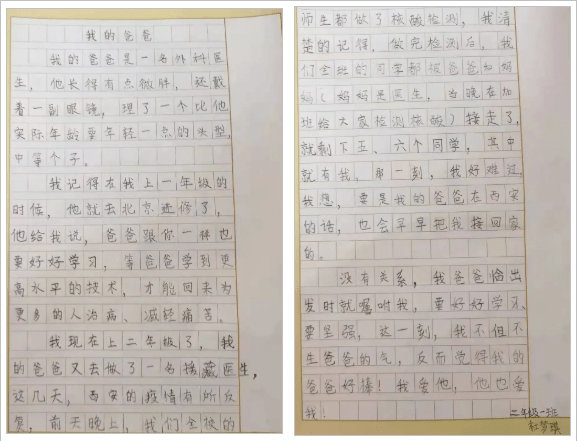 我的爸爸
我的爸爸是一名外科医
生，他长得有点微胖，还戴
着一副眼镜，理了一个比他
实际年龄要年轻一点的头型，
中等个子。
我记得在我上一年级的
时候，他就去北京进修了，
他给我说，爸爸跟你一样也
要好好学习，等爸爸学到更
高水平的技术，才能回来为
更多的人治病、减轻痛苦。
我现在上二年级了，我
的爸爸又去做了一名援藏医生，
这几天，西安的疫情有所反
复，前天晚上，我们全校的
师生都做了核酸检测，我清
楚的记得，做完检测后，我
们全班的同学都被爸爸和妈
妈（妈妈是医生，当晚在加
班给大家检测核酸）接走了，
就剩下五、六个同学，其中
就有我，那一刻，我好难过，
我想，要是我的爸爸在西安
的话，也会早早把我接回家
的。
没有关系，我爸爸临出
发时就嘱咐我，要好好学习、
要坚强，这一刻，我不但不
生爸爸的气，反而觉得我的
爸爸好棒！我爱他，他也爱
我！
二年级一班
杜梦琪